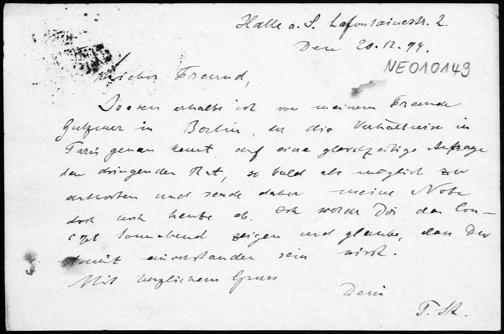 Halle a. S. Lafontainestr. 2.
Den 20.12.99.
NE010149
Lieber Freund,
Soeben erhalte ich von meinem Freunde
in Berlin, der die Verhältnisse in
Paris genau kennt auf eine gleichzeitige Anfrage
den dringenden Rat, so bald als möglich zu
antworten und sende daher meine Note
doch noch heute ab. Ich wollte Dir das Con-
cept Sonnabend zeigen und glaube, dass Du
damit einverstanden sein wirst.
Mit herzlichem Gruss
Dein